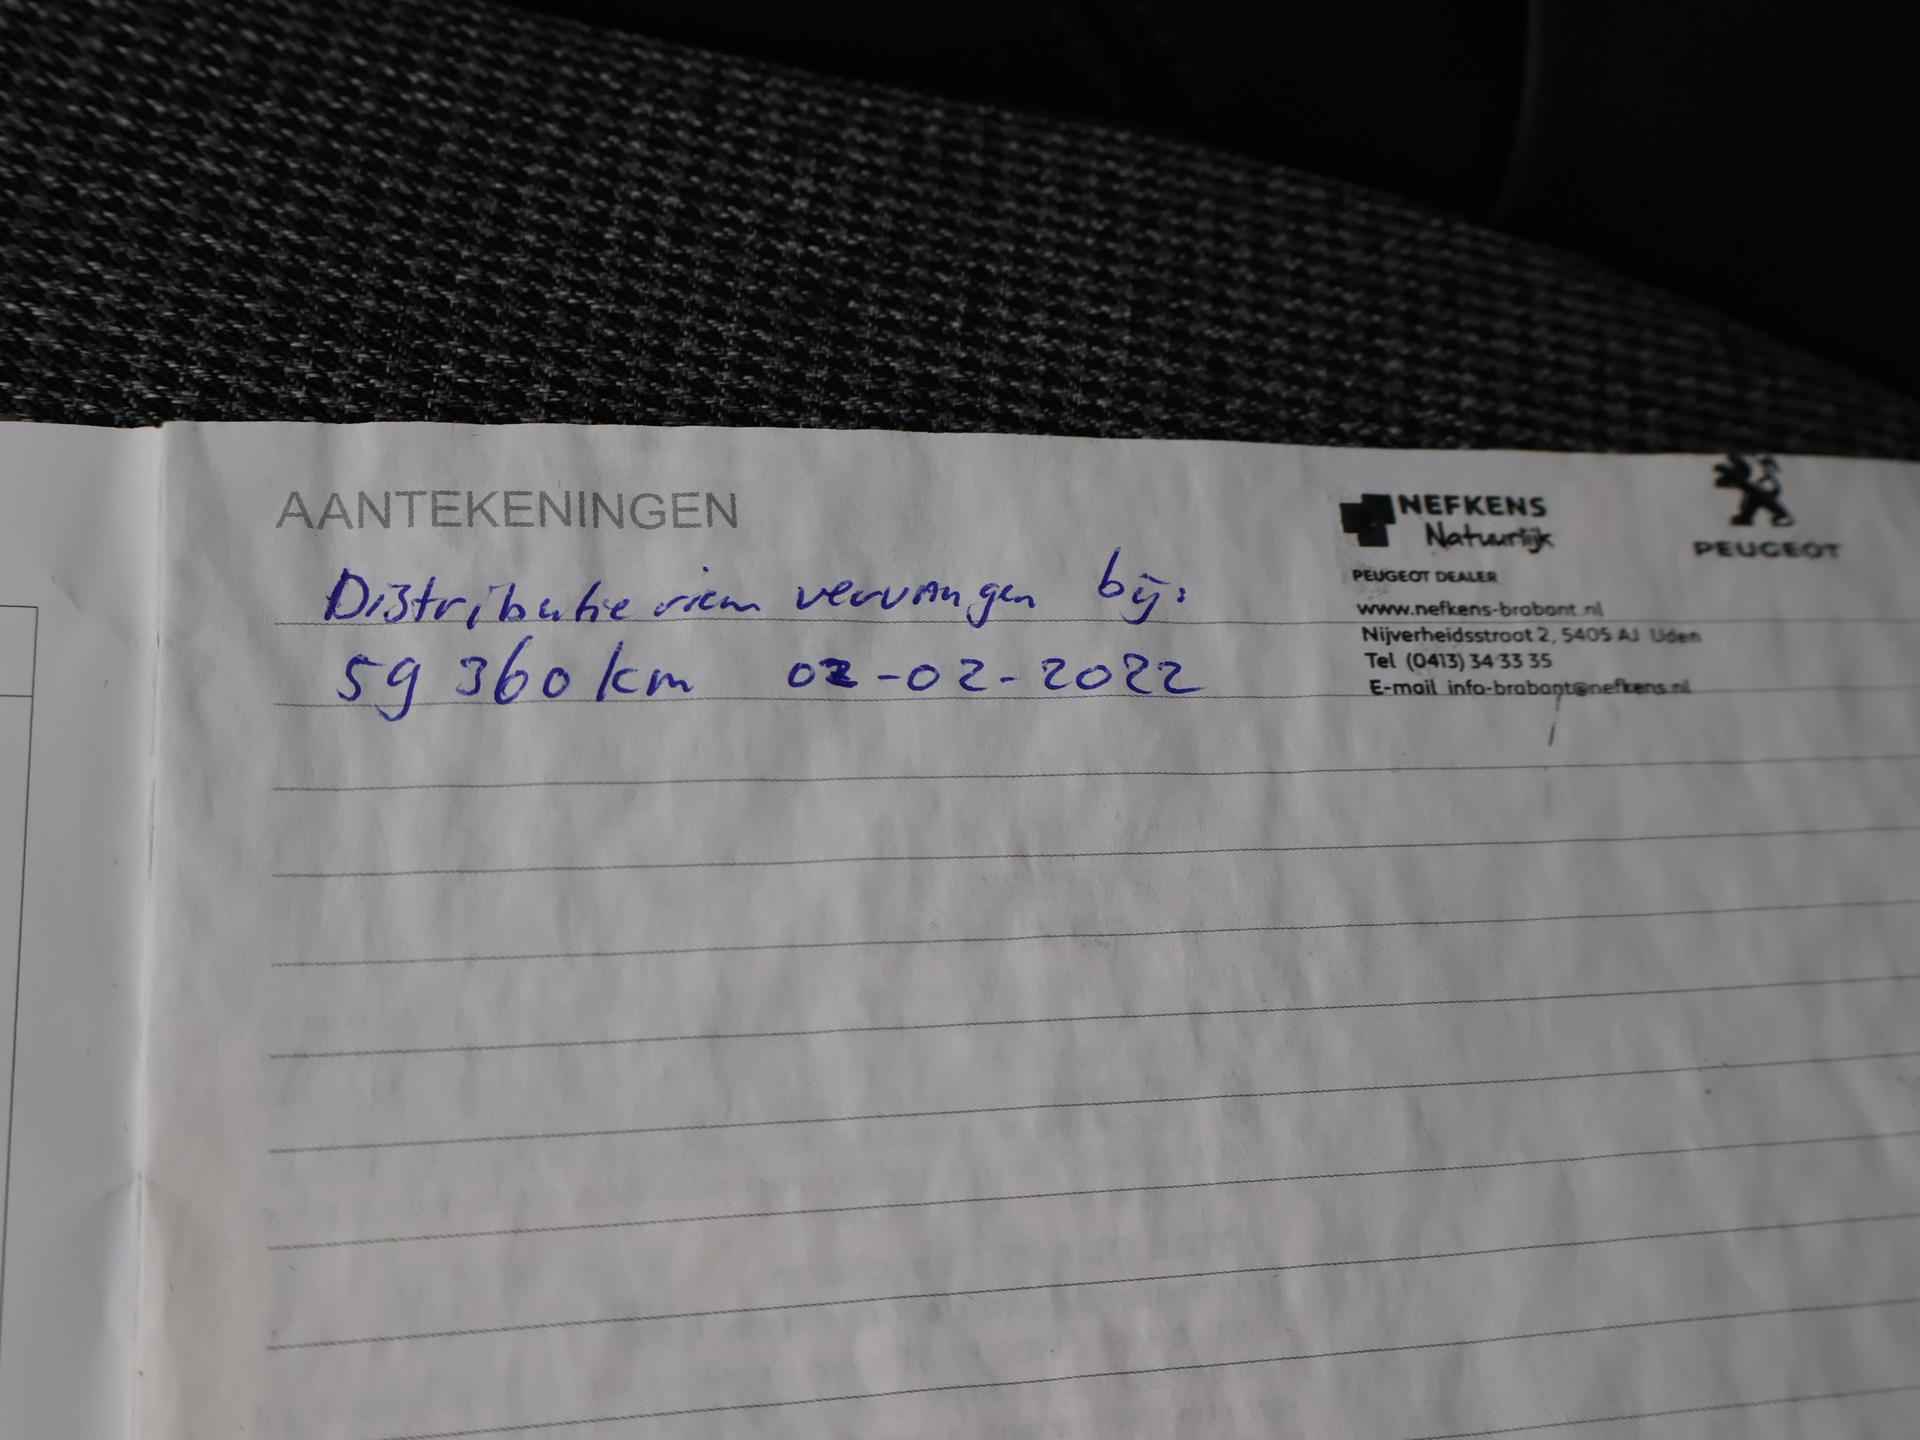 AANTEKENINGEN
Distributie riem vervangen bij:
59 360 km 02-02-2022
NEFKENS
Natuurlijk
PEUGEOT
PEUGEOT DEALER
www.nefkens-brabant.nl
Nijverheidsstraat 2, 5405 AJ Uden
Tel (0413) 34 33 35
E-mail info-brabant@nefkens.nl